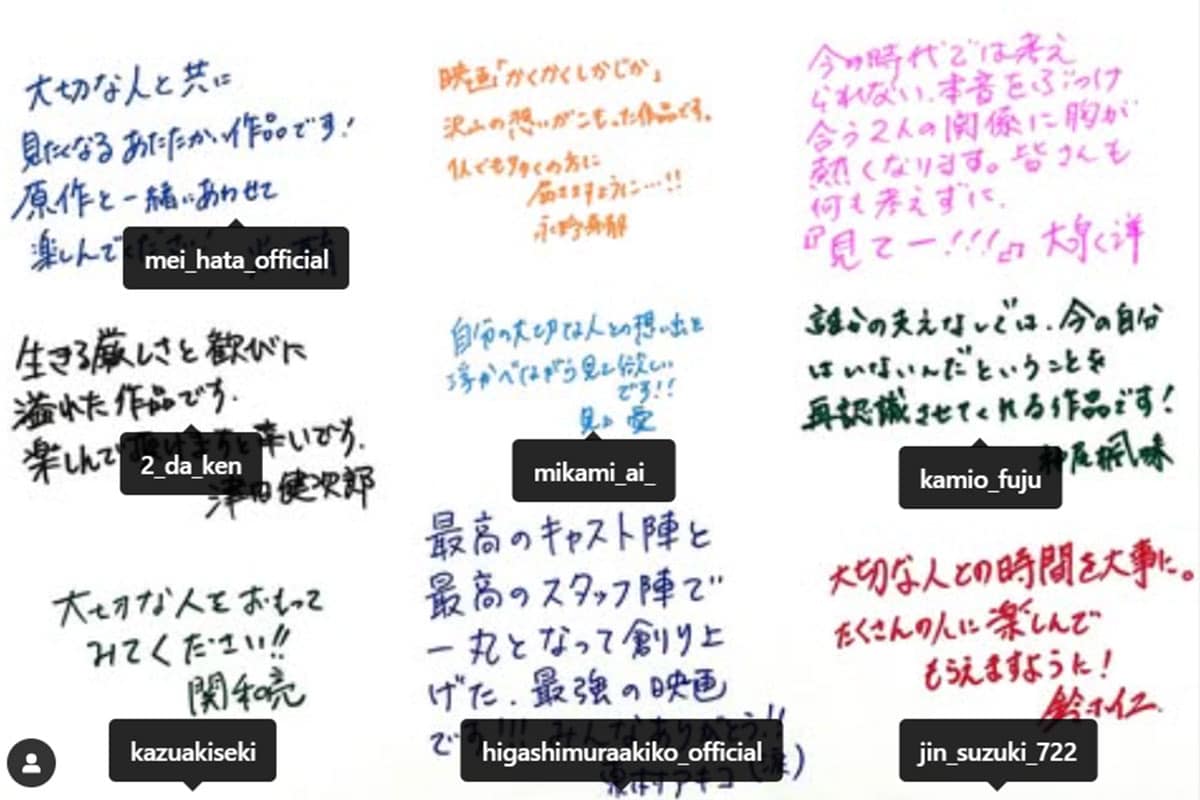 大切な人と共に
見たくなる あたたかい作品です！
原作と一緒にあわせて
楽しんで
mei_hata_official
映画「かくかくしかじか」
沢山の想いがこもった作品です。
1人でも多くの方に
届きますように…!!
永野芽郁
今の時代では考え
られない、本音をぶつけ
合う2人の関係に胸が
熱くなります。皆さんも
何も考えずに、
『見てー!!!』大泉洋
生きる厳しさと歓びに
溢れた作品です。
楽しんで頂けますと幸いです。
津田健次郎
2_da_ken
自分の大切な人との想い出を
浮かべながら見て欲しい
です!!
見上 愛
mikami_ai_
誰かの支えなしでは、今の自分
はいないんだということを
再認識させてくれる作品です！
神尾楓珠
kamio_fuju
大切な人をおもって
みてください!!
関和亮
kazuakiseki
最高のキャスト陣と
最高のスタッフ陣で
一丸となって創り上
げた、最強の映画
です!!! みんなありがとう!!
東村アキコ（涙）
higashimuraakiko_official
大切な人との時間を大事に。
たくさんの人に楽しんで
もらえますように！
鈴木仁
jin_suzuki_722